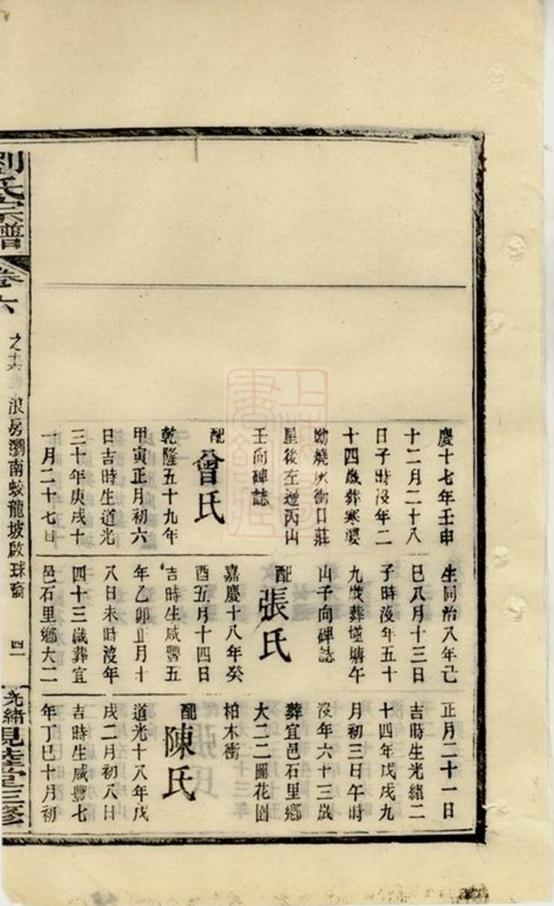 慶十七年壬申
十二月二十八
日子時沒年二
十四歲葬寒婆
坳燒灰衝日莊
屋後左邊丙山
壬向碑誌
配曾氏
乾隆五十九年
甲寅正月初六
日吉時生道光
三十年庚戌十
一月二十七日
生同治八年己
巳八月十三日
子時沒年五十
九歲葬墟塘午
山子向碑誌
配張氏
嘉慶十八年癸
酉五月十四日
吉時生咸豐五
年乙卯正月十
八日未時沒年
四十三歲葬宜
邑石里鄉大二
正月二十一日
吉時生光緒二
十四年戊戌九
月初三日午時
沒年六十三歲
葬宜邑石里鄉
大二二圖花園
柏木衝
配陳氏
道光十八年戊
戌二月初八日
吉時生咸豐七
年丁巳十月初
劉氏宗譜
卷六
之十六
浪房瀏南蛟龍坡啟球裔
四一
光緒
堂三修